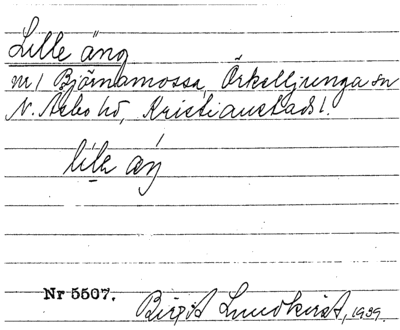 Lille äng
m / Björnamossa, Örkelljunga sn
N. Åsbo hd, Kristianstads l.
lilɐ æŋ
Nr 5507.
Birgit Lundkvist, 1939.